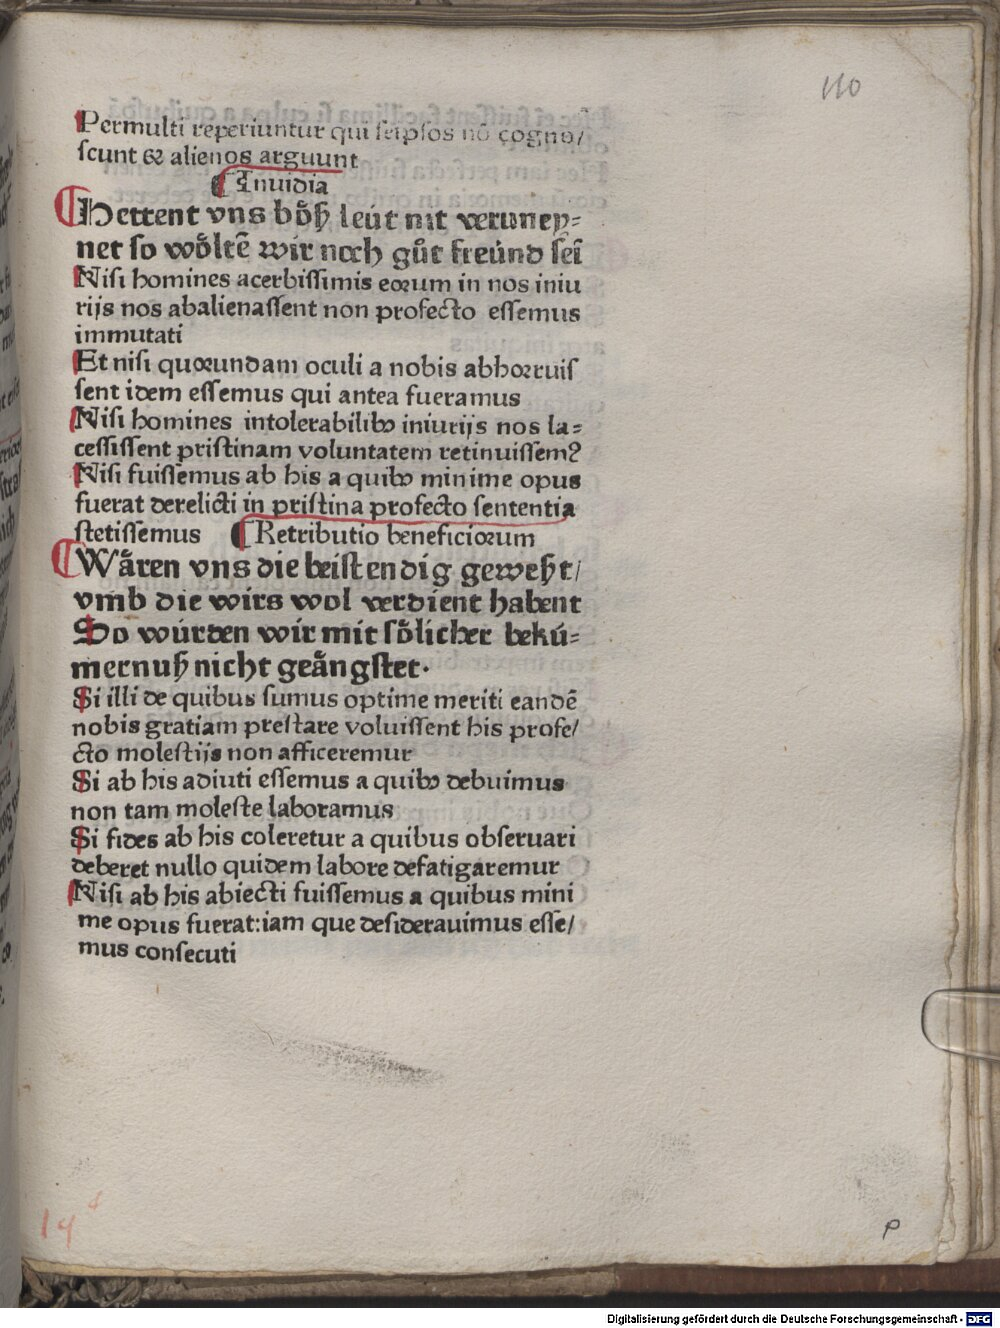 110
Permulti reperiuntur qui seipsos nō cogno/
scunt & alienos arguunt
Inuidia
Hettent vns bőß leüt nit veruney⸗
net so wőltē wir noch gůt freünd sei
Nisi homines acerbissimis eorum in nos iniu
rijs nos abalienassent non profecto essemus
immutati
Et nisi quorundam oculi a nobis abhorruis
sent idem essemus qui antea fueramus
Nisi homines intolerabilibꝯ iniurijs nos la⸗
cessissent pristinam voluntatem retinuissem?
Nisi fuissemus ab his a quibꝯ minime opus
fuerat derelicti in pristina profecto sententia
stetissemus Retributio beneficiorum
Wåren vns die beistendig geweßt/
vmb die wirs wol verdient habent
So würden wir mit sőlicher bekü⸗
mernuß nicht geångstet.
Si illi de quibus sumus optime meriti eandē
nobis gratiam prestare voluissent his profe/
cto molestijs non afficeremur
Si ab his adiuti essemus a quibꝯ debuimus
non tam moleste laboramus
Si fides ab his coleretur a quibus obseruari
deberet nullo quidem labore defatigaremur
Nisi ab his abiecti fuissemus a quibus mini
me opus fuerat:iam que desiderauimus esse/
mus consecuti
p
Digitalisierung gefördert durch die Deutsche Forschungsgemeinschaft - DFG